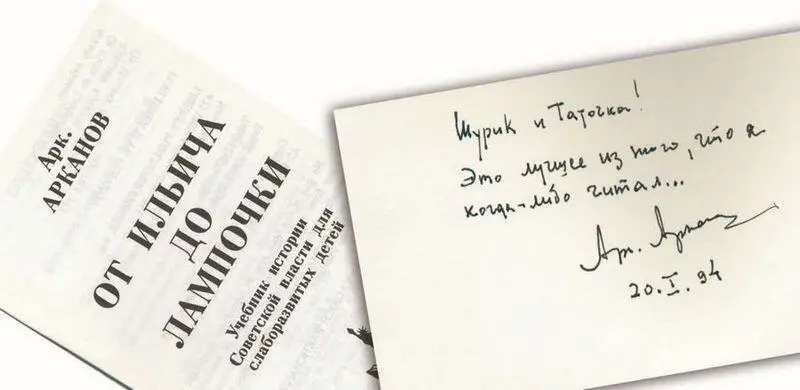 Арк.
АРКАНОВ
ОТ ИЛЬИЧА
ДО
ЛАМПОЧКИ
Учебник истории
Советской власти для
слаборазвитых детей
Шурик и Таточка!
Это лучшее из того, что я
когда-либо читал...
Арк. Арканов
20.I.94